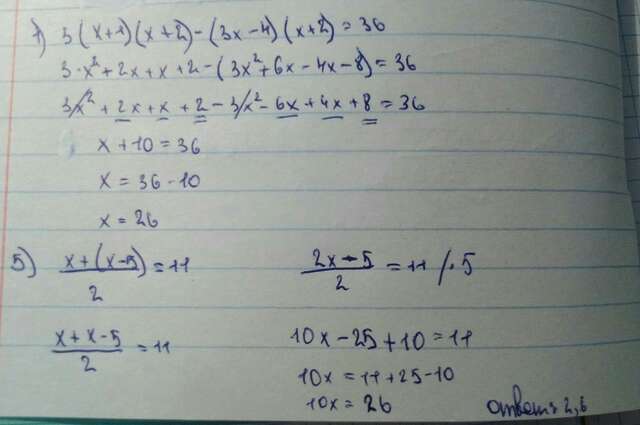 1) 3(x+1)(x+2)-(3x-4)(x+2)=36
3·x²+2x+x+2-(3x²+6x-4x-8)=36
3x²+2x+x+2-3x²-6x+4x+8=36
x+10=36
x=36-10
x=26
5) x+(x-5)/2=11
x+x-5/2=11
2x-5/2=11/·5
10x-25+10=11
10x=11+25-10
10x=26
ответ: 2,6